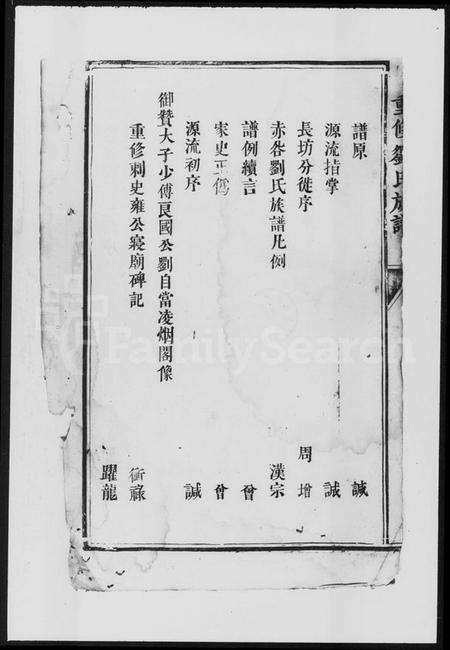 重修劉氏族譜
譜原 誠
源流指掌 誠
長坊分徙序 周增
赤岸劉氏族譜凡例 漢宗
譜例續言 曾
宋史正僞 曾
源流初序 誠
御贊太子少傅良國公劉自當凌烟閣像
重修刺史雍公寢廟碑記 衝祿
躍龍
FamilySearch